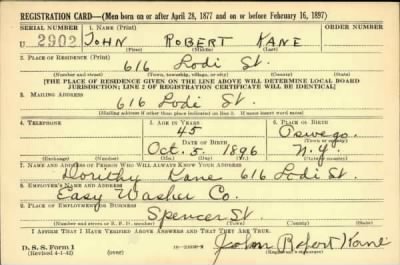 REGISTRATION CARD—(Men born on or after April 28, 1877 and on or before February 16, 1897)
SERIAL NUMBER 1. NAME (Print) ORDER NUMBER
U 2902 JOHN ROBERT KANE
(First) (Middle) (Last)
2. PLACE OF RESIDENCE (Print)
616 Lodi St.
(Number and street) (Town, township, village, or city) (County) (State)
[THE PLACE OF RESIDENCE GIVEN ON THE LINE ABOVE WILL DETERMINE LOCAL BOARD
JURISDICTION; LINE 2 OF REGISTRATION CERTIFICATE WILL BE IDENTICAL]
3. MAILING ADDRESS
616 Lodi St.
[Mailing address if other than place indicated on line 2. If same insert word same]
4. TELEPHONE 5. AGE IN YEARS 6. PLACE OF BIRTH
45 Oswego
DATE OF BIRTH (Town or county)
Oct. 5. 1896 N.Y.
(Exchange) (Number) (Mo.) (Day) (Yr.) (State or country)
7. NAME AND ADDRESS OF PERSON WHO WILL ALWAYS KNOW YOUR ADDRESS
Dorothy Kane 616 Lodi St.
8. EMPLOYER'S NAME AND ADDRESS
Easy Washer Co.
9. PLACE OF EMPLOYMENT OR BUSINESS
Spencer St.
(Number and street or R. F. D. number) (Town) (County) (State)
I AFFIRM THAT I HAVE VERIFIED ABOVE ANSWERS AND THAT THEY ARE TRUE.
D. S. S. Form 1
(Revised 4-1-42) (over) John Robert Kane
(Registrant's signature)